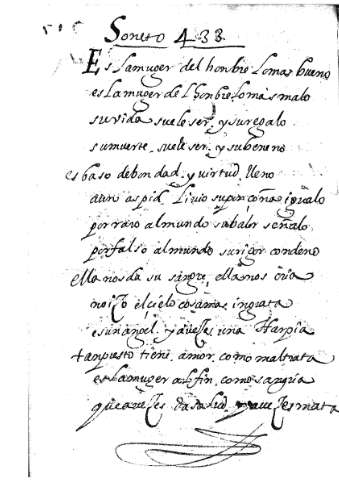 Soneto 433
Es la muger del honbre lo mas bueno
es la muger del honbre lo mas malo
su vida suele ser y su regalo
su muerte suele ser y su beneno
es baso de bondad y virtud lleno
a un aspid livio su ponçoña igualo
por raro al mundo su balor señalo
por falso al mundo su rigor condeno
ella nos da su sangre ella nos cria
no izo el cielo cosa mas ingrata
es un angel y a veçes una Harpia
tan presto tiene amor como maltrata
es la muger al fin como sangria
que a veçes da salud y a veçes mata